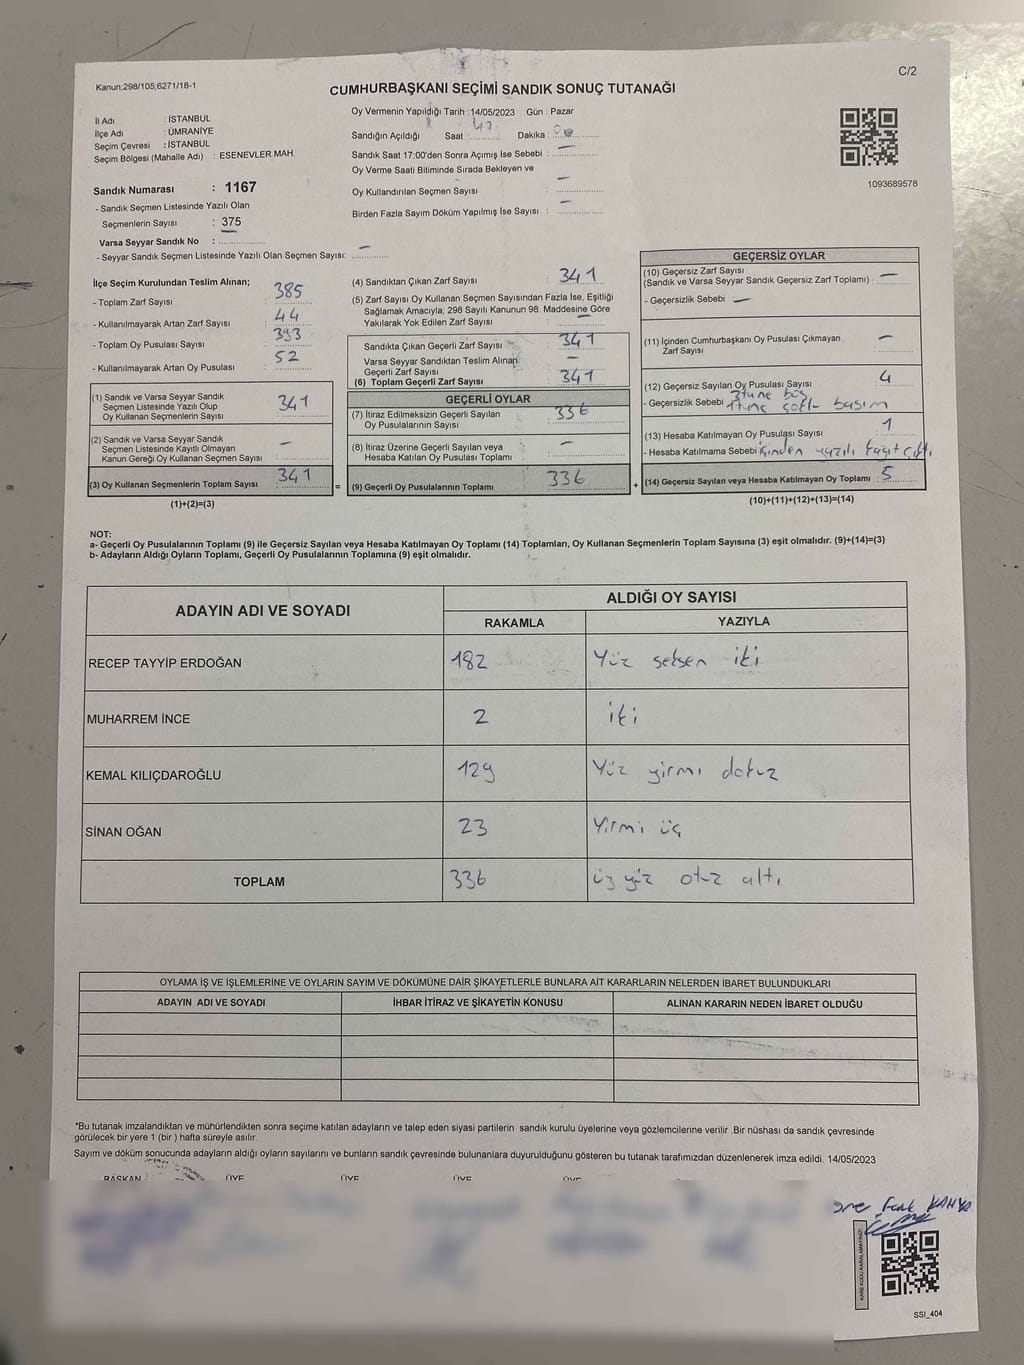 C/2
Kanun;298/105;6271/18-1
CUMHURBAŞKANI SEÇİMİ SANDIK SONUÇ TUTANAĞI
İl Adı : İSTANBUL
İlçe Adı : ÜMRANİYE
Seçim Çevresi : İSTANBUL
Seçim Bölgesi (Mahalle Adı) : ESENEVLER MAH.
Sandık Numarası : 1167
- Sandık Seçmen Listesinde Yazılı Olan
Seçmenlerin Sayısı : 375
Varsa Seyyar Sandık No :
- Seyyar Sandık Seçmen Listesinde Yazılı Olan Seçmen Sayısı: —
Oy Vermenin Yapıldığı Tarih :14/05/2023 Gün : Pazar
Sandığın Açıldığı Saat : 17 Dakika :
Sandık Saat 17:00'den Sonra Açımış İse Sebebi : —
Oy Verme Saati Bitiminde Sırada Bekleyen ve
Oy Kullandırılan Seçmen Sayısı : —
Birden Fazla Sayım Döküm Yapılmış İse Sayısı : —
1093689578
İlçe Seçim Kurulundan Teslim Alınan;
- Toplam Zarf Sayısı : 385
- Kullanılmayarak Artan Zarf Sayısı : 44
- Toplam Oy Pusulası Sayısı : 393
- Kullanılmayarak Artan Oy Pusulası : 52
(1) Sandık ve Varsa Seyyar Sandık
Seçmen Listesinde Yazılı Olup
Oy Kullanan Seçmenlerin Sayısı : 341
(2) Sandık ve Varsa Seyyar Sandık
Seçmen Listesinde Kayıtlı Olmayan
Kanun Gereği Oy Kullanan Seçmen Sayısı : —
(3) Oy Kullanan Seçmenlerin Toplam Sayısı : 341
(1)+(2)=(3)
(4) Sandıktan Çıkan Zarf Sayısı : 341
(5) Zarf Sayısı Oy Kullanan Seçmen Sayısından Fazla İse, Eşitliği
Sağlamak Amacıyla; 298 Sayılı Kanunun 98. Maddesine Göre
Yakılarak Yok Edilen Zarf Sayısı : —
Sandıkta Çıkan Geçerli Zarf Sayısı : 341
Varsa Seyyar Sandıktan Teslim Alınan
Geçerli Zarf Sayısı : —
(6) Toplam Geçerli Zarf Sayısı : 341
GEÇERLİ OYLAR
(7) İtiraz Edilmeksizin Geçerli Sayılan
Oy Pusulasının Sayısı : 336
(8) İtiraz Üzerine Geçerli Sayılan veya
Hesaba Katılan Oy Pusulası Toplamı : —
= (9) Geçerli Oy Pusulalarının Toplamı : 336
GEÇERSİZ OYLAR
(10) Geçersiz Zarf Sayısı
(Sandık ve Varsa Seyyar Sandık Geçersiz Zarf Toplamı) : —
- Geçersizlik Sebebi : —
(11) İçinden Cumhurbaşkanı Oy Pusulası Çıkmayan
Zarf Sayısı : —
(12) Geçersiz Sayılan Oy Pusulası Sayısı : 4
- Geçersizlik Sebebi : 3 tane boş
1 tane basım
(13) Hesaba Katılmayan Oy Pusulası Sayısı : 1
- Hesaba Katılmama Sebebi : içinden yazılı kağıt çıktı
+ (14) Geçersiz Sayılan veya Hesaba Katılmayan Oy Toplamı : 5
(10)+(11)+(12)+(13)=(14)
NOT:
a- Geçerli Oy Pusulalarının Toplamı (9) ile Geçersiz Sayılan veya Hesaba Katılmayan Oy Toplamı (14) Toplamları, Oy Kullanan Seçmenlerin Toplam Sayısına (3) eşit olmalıdır. (9)+(14)=(3)
b- Adayların Aldığı Oyların Toplamı, Geçerli Oy Pusulalarının Toplamına (9) eşit olmalıdır.
ADAYIN ADI VE SOYADI
ALDIĞI OY SAYISI
RAKAMLA YAZIYLA
RECEP TAYYİP ERDOĞAN 182 Yüz seksen iki
MUHARREM İNCE 2 iki
KEMAL KILIÇDAROĞLU 129 Yüz yirmi dokuz
SİNAN OĞAN 23 Yirmi üç
TOPLAM 336 üç yüz otuz altı
OYLAMA İŞ VE İŞLEMLERİNE VE OYLARIN SAYIM VE DÖKÜMÜNE DAİR ŞİKAYETLERLE BUNLARA AİT KARARLARIN NELERDEN İBARET BULUNDUKLARI
ADAYIN ADI VE SOYADI İHBAR İTİRAZ VE ŞİKAYETİN KONUSU ALINAN KARARIN NEDEN İBARET OLDUĞU
*Bu tutanak imzalandıktan ve mühürlendikten sonra seçime katılan adayların ve talep eden siyasi partilerin sandık kurulu üyelerine veya gözlemcilerine verilir .Bir nüshası da sandık çevresinde
görülecek bir yere 1 (bir ) hafta süreyle asılır.
Sayım ve döküm sonucunda adayların aldığı oyların sayılarını ve bunların sandık çevresinde bulunanlara duyurulduğunu gösteren bu tutanak tarafımızdan düzenlenerek imza edildi. 14/05/2023
BAŞKAN ÜYE ÜYE ÜYE ÜYE
KAHYA
KARE KODU KARALAMAYINIZ!
SSI_404